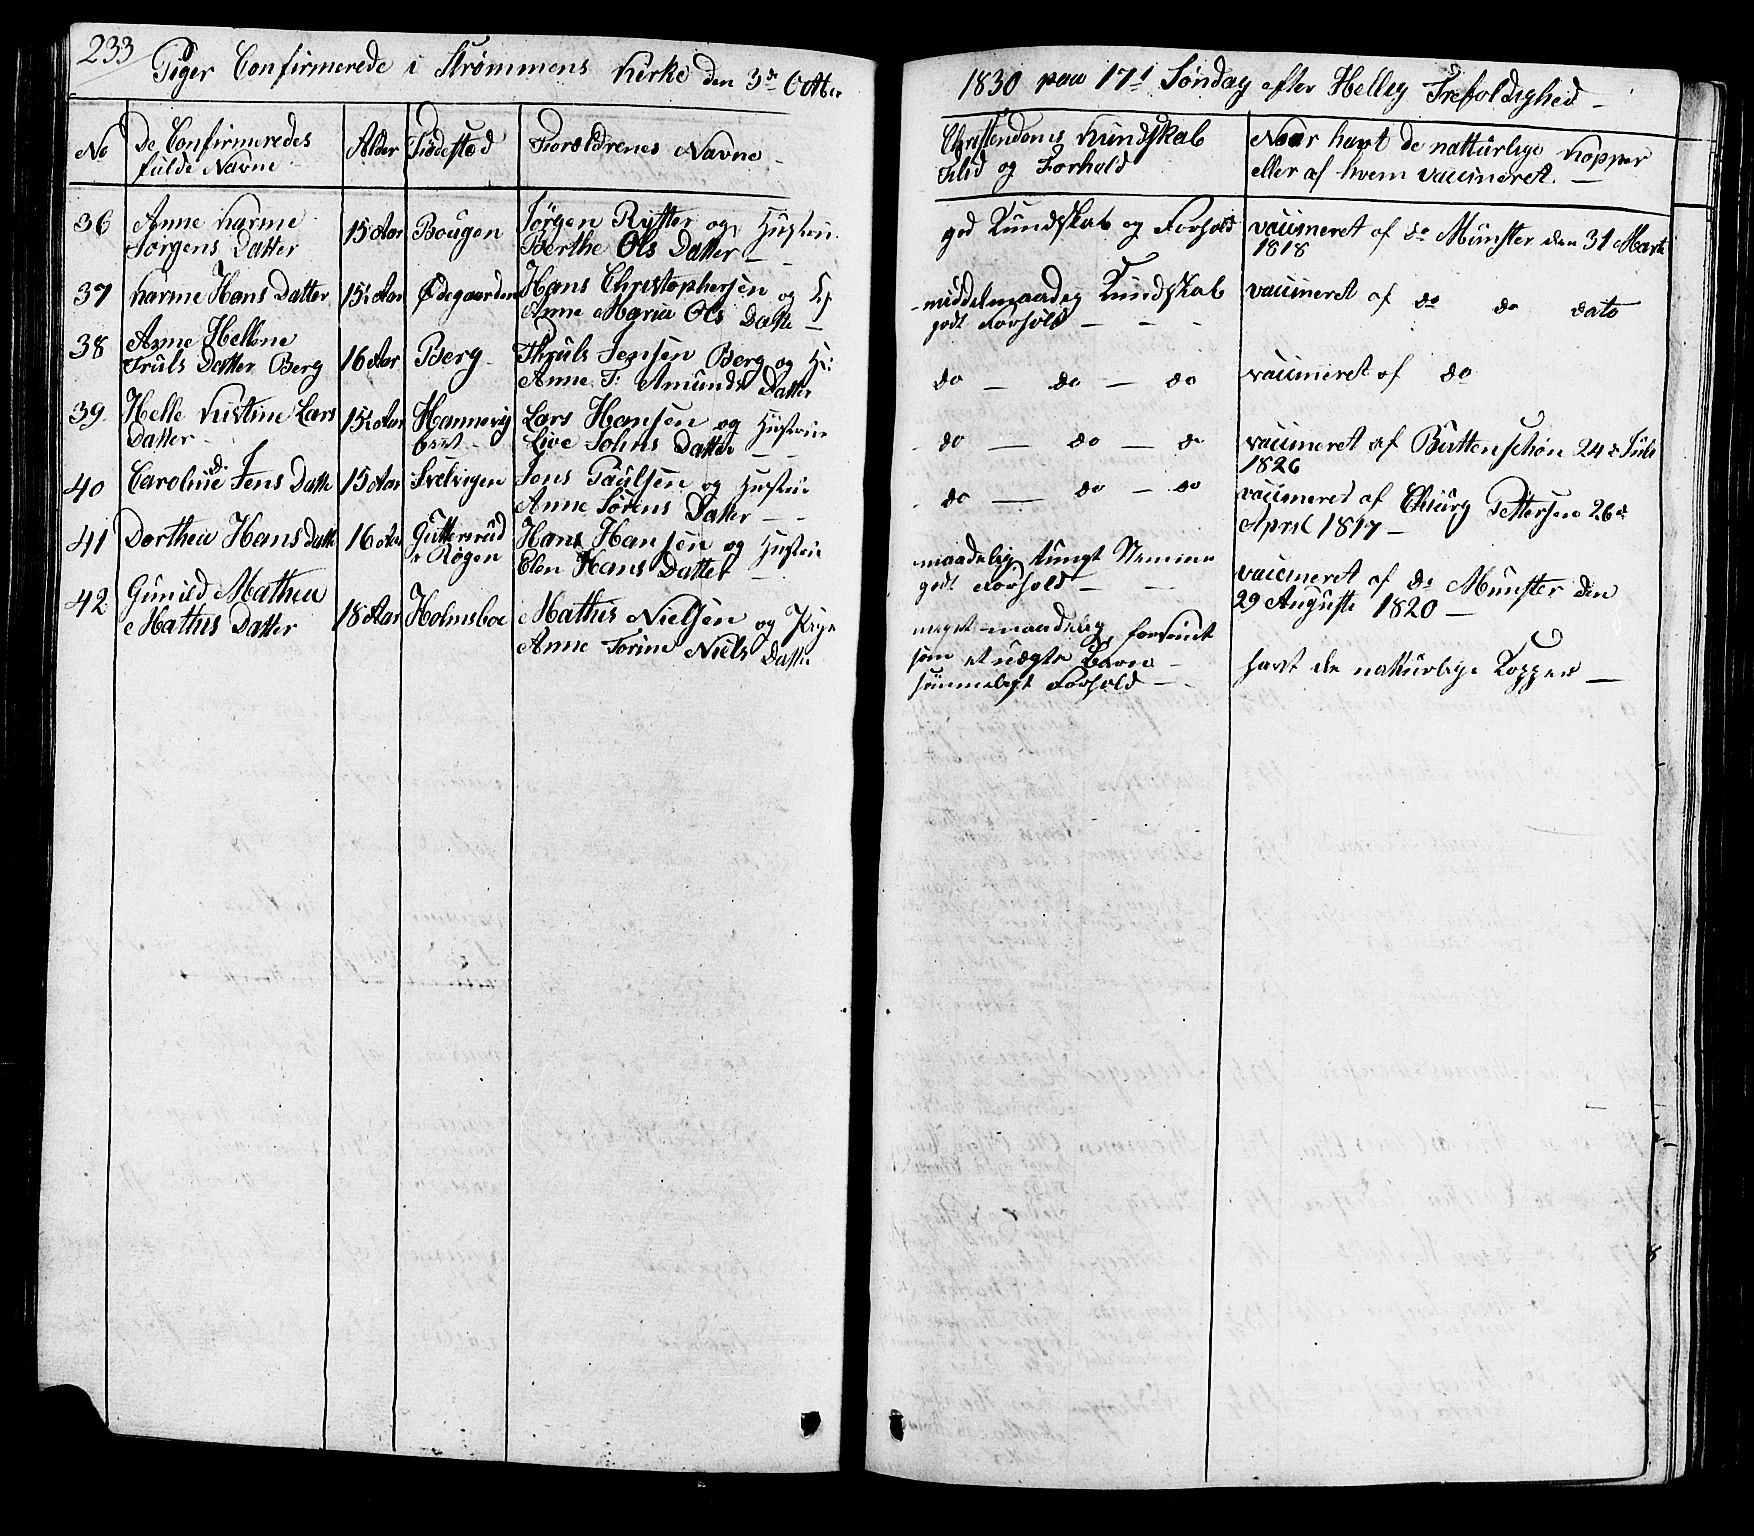 233
Piger Confirmerede i Strømmens Kirke den 3de Octbr 1830 paa 17de Søndag efter Hellig Trefoldighed –
No
De Confirmeredes
fulde Navne
Alder
Fødested
Forældrenes Navne
Christendoms Kundskab
Flid og Forhold
Naar havt de naturlige Kopper
eller af hvem vaccineret. –
36 Anne Karine
Jørgens Datter
15 Aar
Bougen
Jørgen Rytter og Hustrue
Berthe Ols Datter –
god Kundskab og Forhold
vaccineret af do Münster den 31 Marts
1818
37 Karine Hans Datter
15 Aar
Ødegaarden
Hans Christophersen og
Anne Maria Ols Datter –
middelmaadig Kundskab
godt Forhold – – –
vaccineret af do do dato
38 Anne Hellene
Truls Datter Berg
16 Aar
Berg
Thruls Jensen Berg og H:
Anne T: Amunds Datter
do – do – do
vaccineret af do
39 Helle Kistine Lars
Datter –
15 Aar
Lars Hansen og Hustrue
Live Johns Datter – –
do – do – do
vaccineret af Buttenschøn 24de Juli
1826
40 Caroline Jens Datt
15 Aar
Svelvigen
Jens Paulsen og Hustrue
Anne Sørens Datter – –
do – do – do
vaccineret af Chiurg Pettersen 26de
April 1817 –
41 Dorthea Hans datt
16 Aar
Guttersrud
i Røgen
Hans Hansen og Hustrue
Elen Hans Datter –
maadelig tungt Nemme
godt Forhold – –
vaccineret af do Münster den
29 Auguste 1820 –
42 Gunild Mathea
Mathis Datter
18 Aar
Holmsboe
Mathis Nielsen og Pige
Anne Torine Niels Datter
meget maadelig forsømt
som et uægte Barn –
sømmeligt Forhold –
havt de naturlige Kopper –